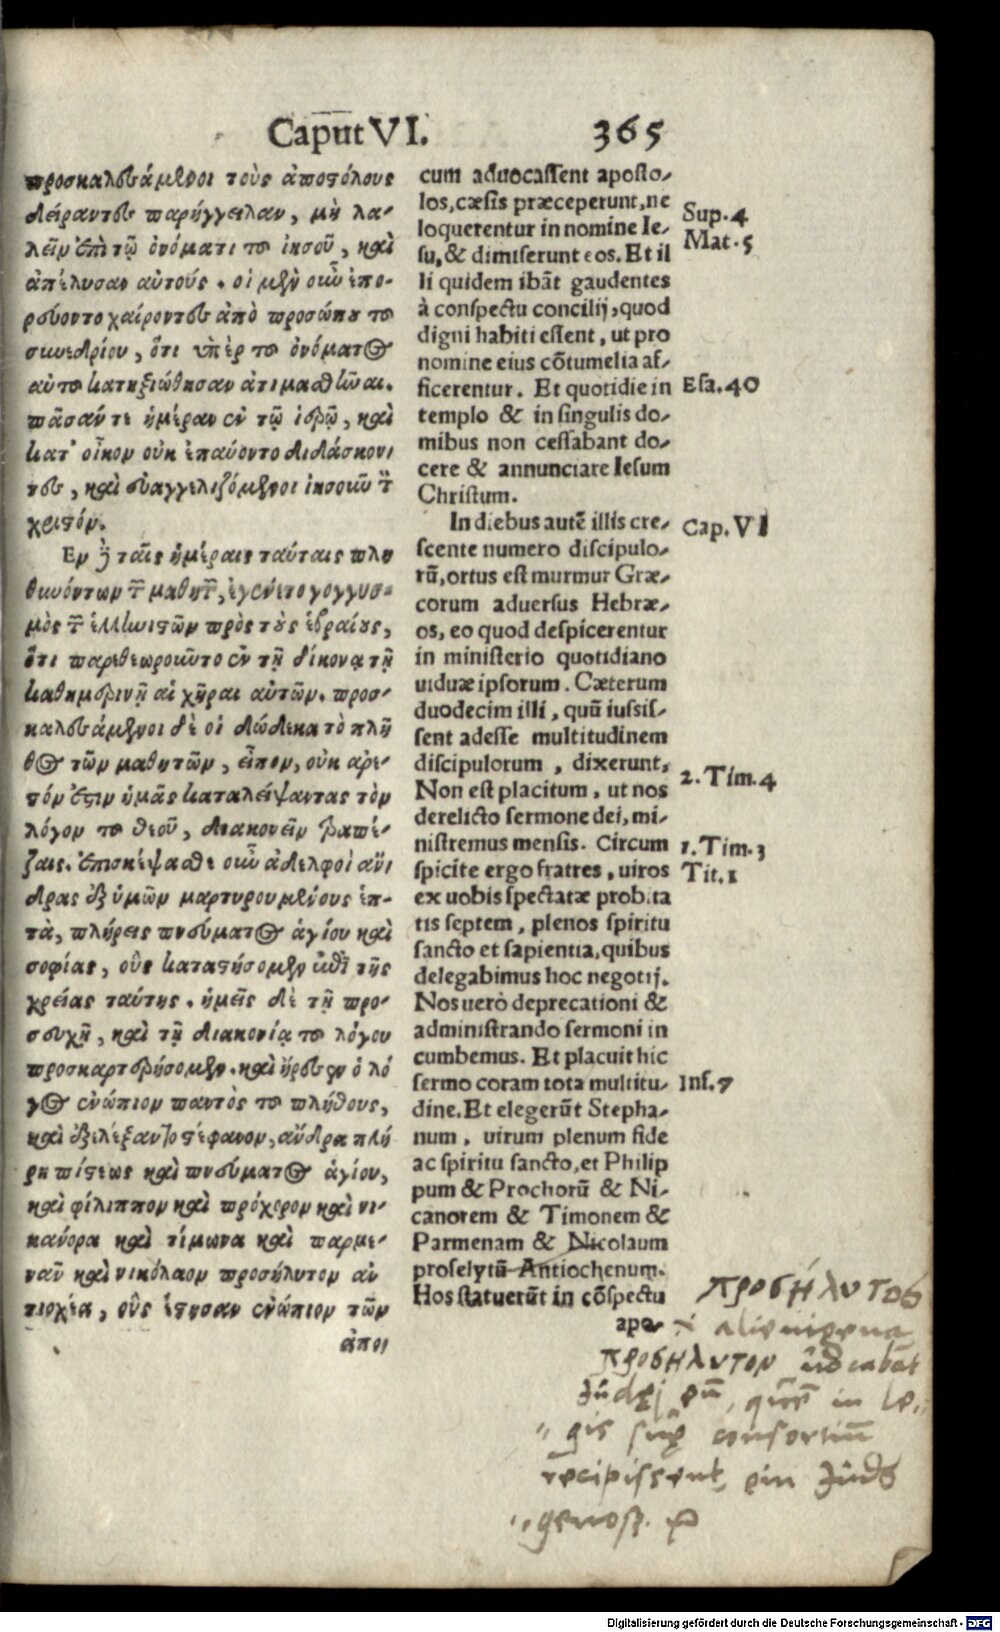 Caput VI. 365
προσκαλεσάμενοι τοὺς ἀποστόλους
δείραντες παρήγγειλαν, μὴ λα-
λεῖν ἐπὶ τῷ ὀνόματι τοῦ ἰησοῦ, καὶ
ἀπέλυσαν αὐτούς. οἱ μὲν οὖν ἐπο-
ρεύοντο χαίροντες ἀπὸ προσώπου τοῦ
συνεδρίου, ὅτι ὑπὲρ τοῦ ὀνόματος
αὐτοῦ κατηξιώθησαν ἀτιμασθῆναι.
πᾶσάν τε ἡμέραν ἐν τῷ ἱερῷ, καὶ
κατ' οἶκον οὐκ ἐπαύοντο διδάσκον
τες, καὶ εὐαγγελιζόμενοι ἰησοῦν τὸν
χριστόν.
Εν δὲ ταῖς ἡμέραις ταύταις πλη
θυνόντων τῶν μαθητῶν, ἐγένετο γογγυσ-
μὸς τῶν ἑλληνιστῶν πρὸς τοὺς ἑβραίους,
ὅτι παρεθεωροῦντο ἐν τῇ διακονίᾳ τῇ
καθημερινῇ αἱ χῆραι αὐτῶν. προσ-
καλεσάμενοι δὲ οἱ δώδεκα τὸ πλῆ
θος τῶν μαθητῶν, εἶπον, οὐκ ἀρε-
στόν ἐστιν ἡμᾶς καταλείψαντας τὸν
λόγον τοῦ θεοῦ, διακονεῖν τραπέ-
ζαις. ἐπισκέψασθε οὖν ἀδελφοὶ ἄν
δρας ἐξ ὑμῶν μαρτυρουμένους ἑπ-
τὰ, πλήρεις πνεύματος ἁγίου καὶ
σοφίας, οὓς καταστήσομεν ἐπὶ τῆς
χρείας ταύτης. ἡμεῖς δὲ τῇ προ-
σευχῇ, καὶ τῇ διακονίᾳ τοῦ λόγου
προσκαρτερήσομεν. καὶ ἤρεσεν ὁ λό
γος ἐνώπιον παντὸς τοῦ πλήθους,
καὶ ἐξελέξαντο στέφανον, ἄνδρα πλή
ρη πίστεως καὶ πνεύματος ἁγίου,
καὶ φίλιππον καὶ πρόχορον καὶ νι-
κάνορα καὶ τίμωνα καὶ παρμε-
νᾶν καὶ νικόλαον προσήλυτον ἀν
τιοχέα, οὓς ἔστησαν ἐνώπιον τῶν
ἀπο
cum aduocassent aposto-
los, cæsis præceperunt, ne
loquerentur in nomine Ie-
su, & dimiserunt eos. Et il
li quidem ibãt gaudentes
à conspectu concilij, quod
digni habiti essent, ut pro
nomine eius cõtumelia af-
ficerentur. Et quotidie in
templo & in singulis do-
mibus non cessabant do-
cere & annunciare Iesum
Christum.
In diebus autẽ illis cre-
scente numero discipulo-
rũ, ortus est murmur Græ-
corum aduersus Hebræ-
os, eo quod despicerentur
in ministerio quotidiano
uiduæ ipsorum. Cæterum
duodecim illi, quũ iussis-
sent adesse multitudinem
discipulorum, dixerunt,
Non est placitum, ut nos
derelicto sermone dei, mi-
nistremus mensis. Circum
spicite ergo fratres, uiros
ex uobis spectatæ probita
tis septem, plenos spiritu
sancto et sapientia, quibus
delegabimus hoc negotij.
Nos uerò deprecationi &
administrando sermoni in
cumbemus. Et placuit hic
sermo coram tota multitu-
dine. Et elegerũt Stepha-
num, uirum plenum fide
ac spiritu sancto, et Philip
pum & Prochorũ & Ni-
canorem & Timonem &
Parmenam & Nicolaum
proselytũ Antiochenum.
Hos statuerũt in cõspectu
apo-
Sup. 4
Mat. 5
Esa. 40
Cap. VI
2. Tim. 4
1. Tim. 3
Tit. 1
Inf. 7
προσήλυτος
alienigena
προσηλυτον
in le-
gis consortiũ
recipissent, ein Jud
genoss.
Digitalisierung gefördert durch die Deutsche Forschungsgemeinschaft - DFG